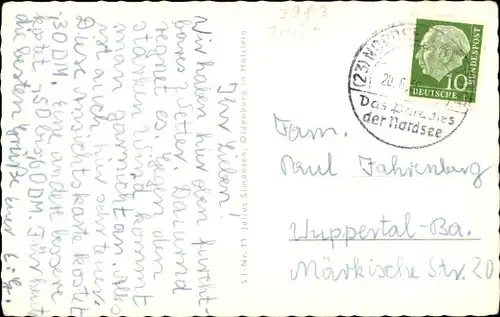 2983
Ihr Lieben!
Wir haben hier oben furcht-
bares Wetter. Dauernd
regnet es. Gegen den
starken Wind kommt
man garnicht an. Alles
ist auch hier sehr teuer.
Diese Ansichtskarte kostet
30 DM. Eine andere bessere
kostet -,50 bis 60 DM. Für heute
die besten Grüße Eure
St-Nr. 11 Julius Simonsen, Oldenburg in Holstein
(23) NORDDE
20.6.
Das Paradies
der Nordsee
10
DEUTSCHE
BUNDESPOST
Fam.
Paul Fahrenberg
Wuppertal-Ba.
Märkische Str. 20